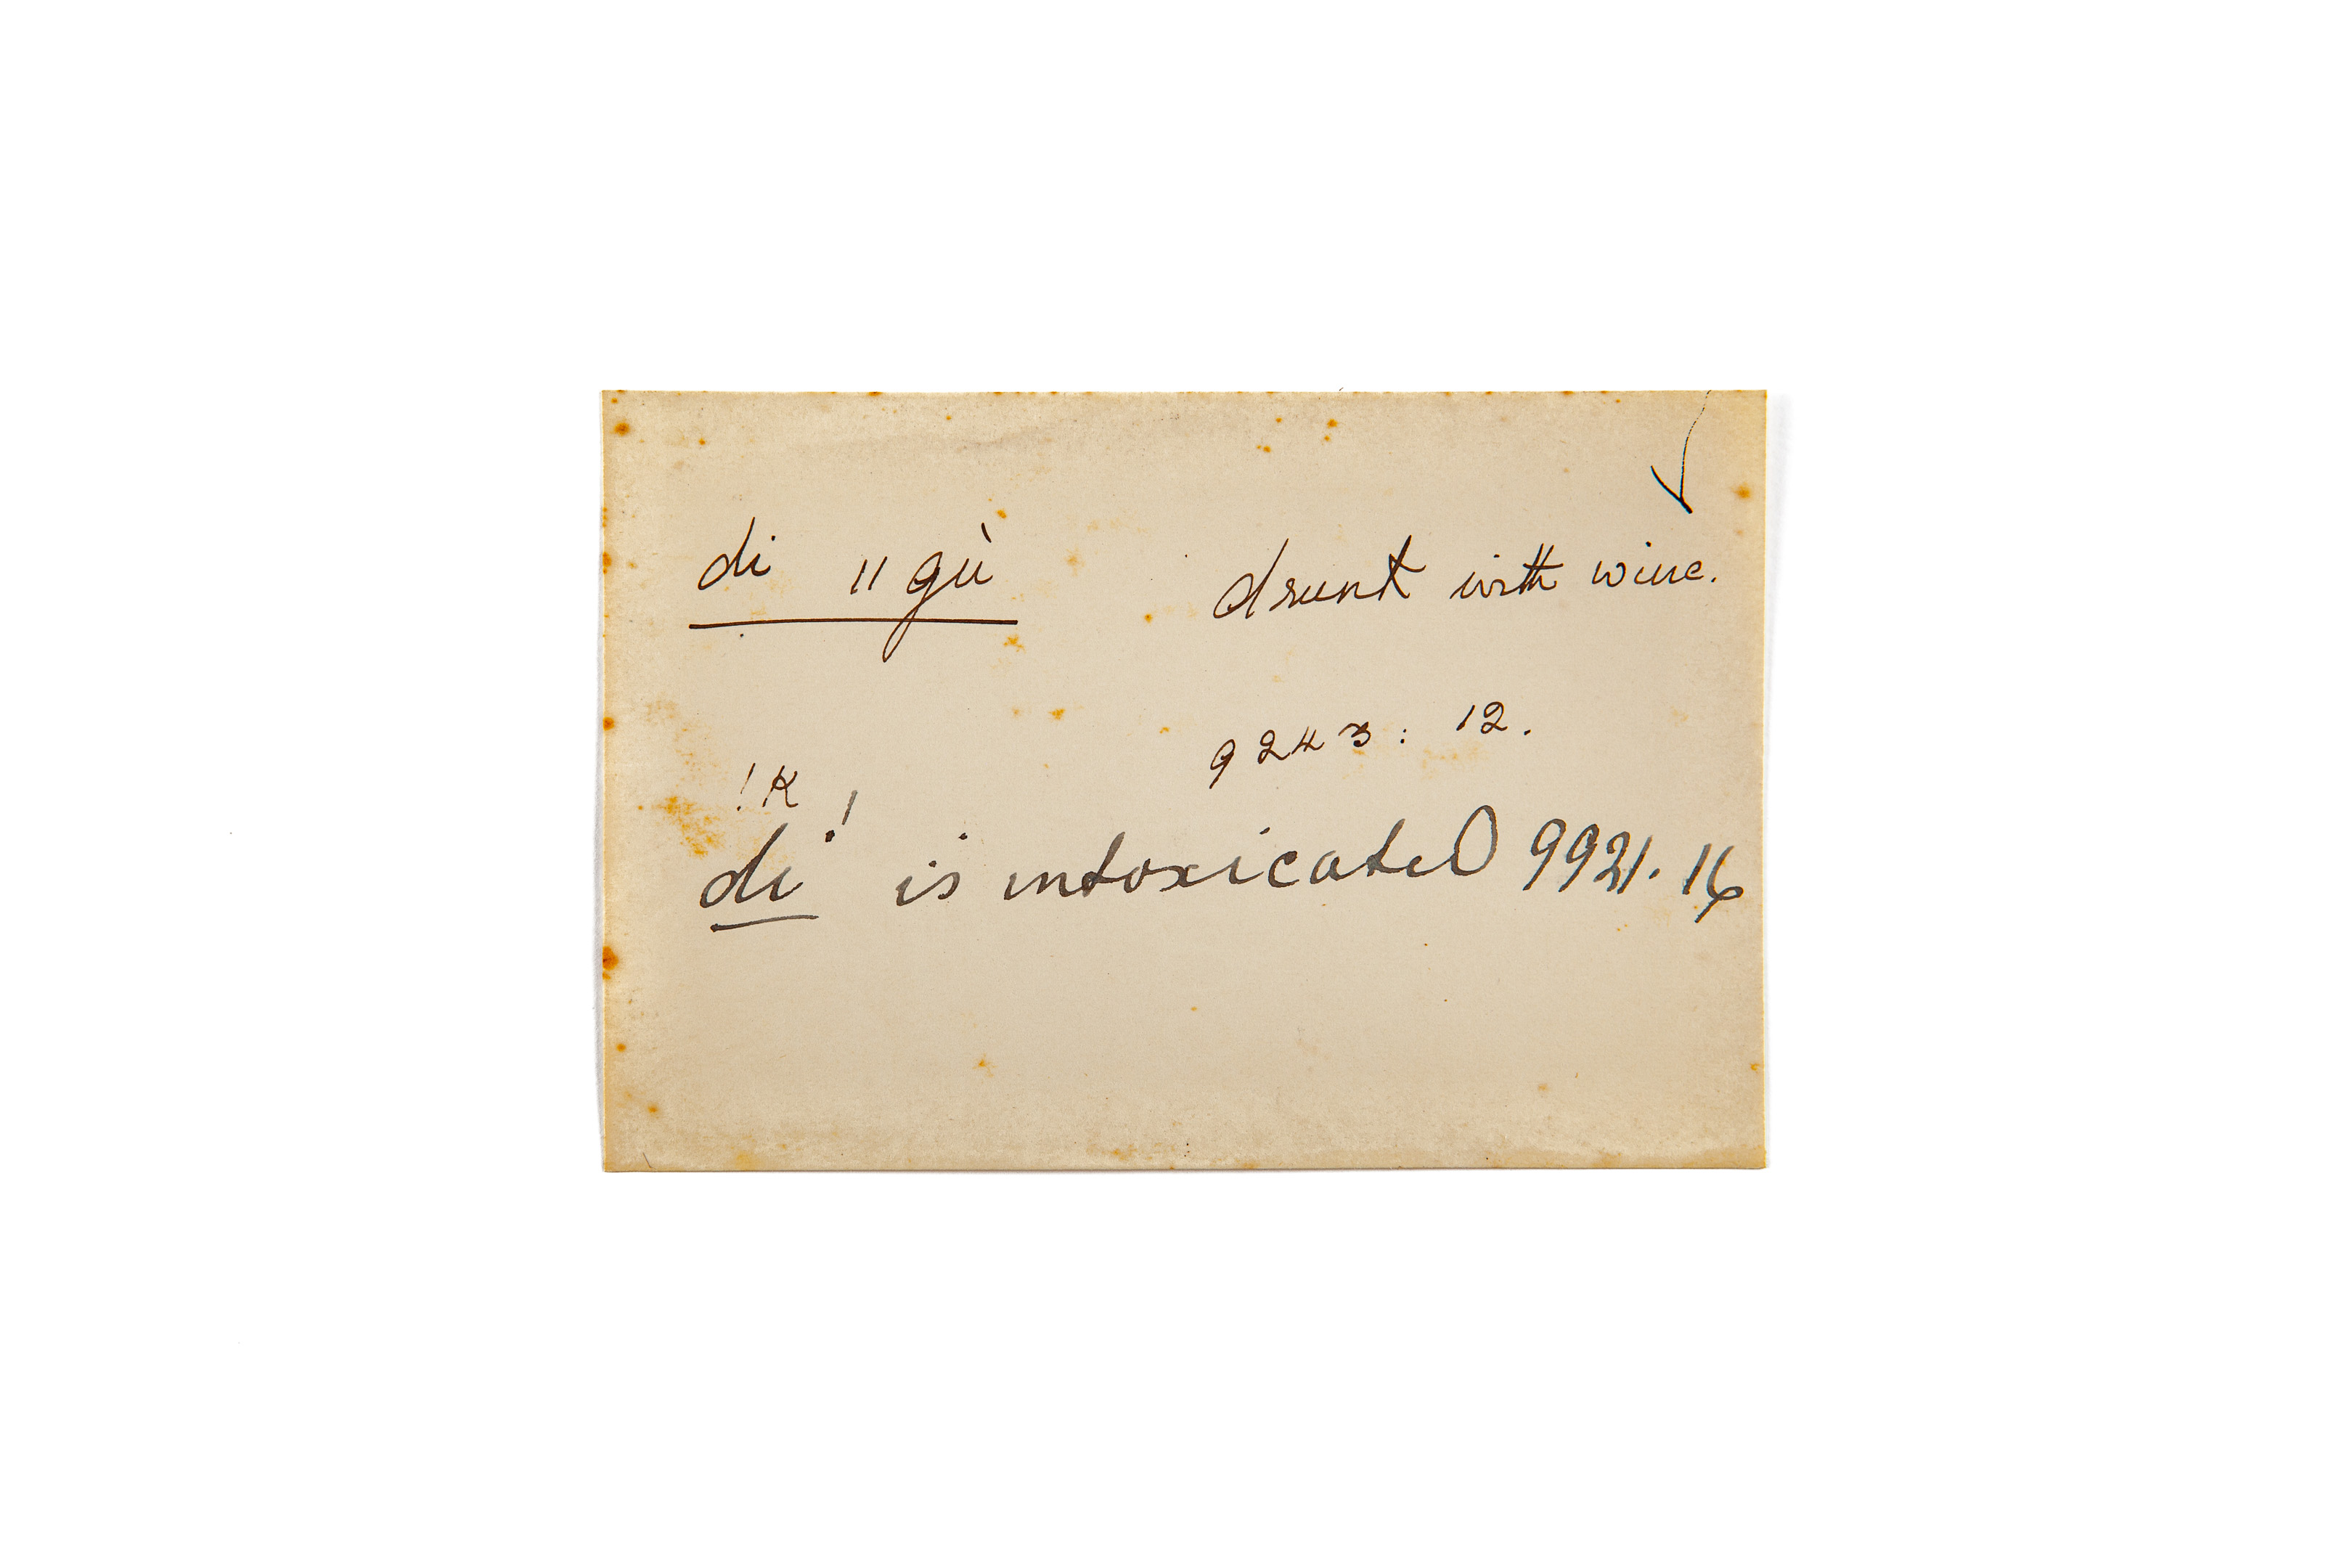 di ǁ gù drunk with wine.
9243 : 12.
!K
di! is intoxicated 9921. 16